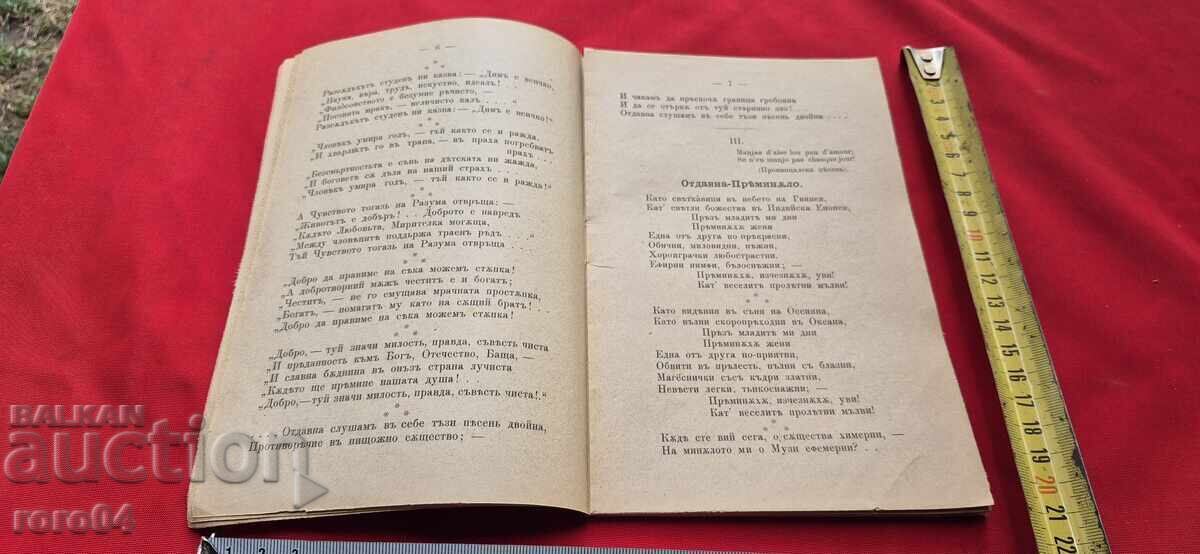 — 6 —
*
* *
Разсѫдъкътъ студенъ ни казва: — „Димъ е всичко,
„Наука, вѣра, трудъ, искуство, идеалъ! . .
„Философството е безумие рѣчисто, —
„Поезията мракъ, — величисто калъ . . . .“
Разсѫдъкътъ студенъ ни казва: — „Димъ е всичко!“
*
* *
„Человѣкъ умира голъ, — тъй както се и ражда,
„И хвърлятъ го въ трапа, — въ праха погребватъ
прахъ . . .
„Безсмъртностьта е сънь на дѣтската ни жажда,
„И боговетѣ сѫ дѣла на нашия страхъ . . . .
„Человѣкъ умира голъ, — тъй както се и ражда!“
*
* *
А Чувството тогазъ на Разума отвръща: —
„Животътъ е добъръ! . . Доброто е навредъ
„Кѫдѣто Любовьта, Мирителка могѫща,
„Между человѣцитѣ поддържа траенъ редъ. . . .“
Тъй Чувството тогазъ на Разума отвръща . . .
*
* *
„Добро да правиме на сѣка можемъ стѫпка!
„А добротворний мѫжъ честитъ е и богатъ;
„Честитъ, — не го смущава мрачната простѫпка,
„Богатъ, — помагатъ му като на сѫщий братъ! . . .
„Добро да правиме на сѣка можемъ стѫпка!
*
* *
„Добро, — туй значи милость, правда, съвѣсть чиста
„И прѣданность къмъ Богъ, Отечество, Баща, —
„И славна бѫднина въ онъзъ страна лучиста
„Кѫдѣто ще прѣмине нашата душа! . .
„Добро, — туй значи милость, правда, съвѣсть чиста!“
*
* *
. . . . Отдавна слушамъ въ себе тъзи пѣсень двойна,
Противорѣчие въ нищожно сѫщество; —
— 7 —
И чакамъ да прѣскоча граница гробовна
И да се отърва отъ туй старинно зло! . . . .
Отдавна слушамъ въ себе тъзи пѣсень двойна . . . .
III.
(Провинциалска пѣсень).
Отдавна-Прѣминѫло.
Като свѣткавици въ небето на Гвинея,
Кат' свѣтли божества въ Индийска Епопея,
Прѣзъ младитѣ ми дни
Прѣминѫхѫ жени
Една отъ друга по-прѣкрасни,
Обични, миловидни, нѣжни,
Хороиграчки любострастни.
Ефирни нимфи, бѣлоснѣжни; —
Прѣминѫхѫ, изчезнѫхѫ, уви!
Кат' веселитѣ пролѣтни мълви!
*
* *
Като видѣния въ съня на Оссияна,
Като вълни скоропрѣходни въ Океана,
Прѣзъ младитѣ ми дни
Прѣминѫхѫ жени
Една отъ друга по-приятни,
Обвити въ прѣлесть, пълни съ блазни,
Магёснички съсъ къдри златни,
Невѣсти легки, тънкоснажни; —
Прѣминѫхѫ, изчезнѫхѫ, уви!
Кат' веселитѣ пролѣтни мълви!
*
* *
Кѫдѣ сте вий сега, о сѫщества химерни, —
На минѫлото ми о Музи ефемерни? . .
BALKAN
auction
roro04
1 2 3
2 3 4 5 6 7 8 9 10 11 12 13 14 15 16 17 18 19 20 21 22